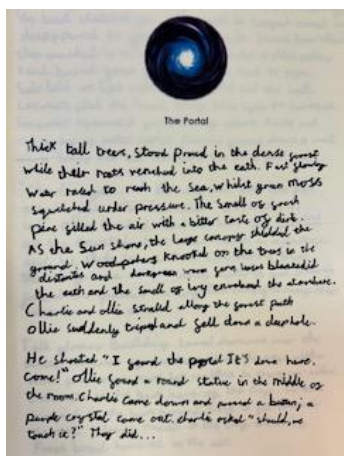 The Portal
Thick tall trees, stood proud in the dense forest
while their roots reached into the eath. Fast flowing
water raced to reach the sea, whilst green moss
squelched under pressure. The smell of fresh
pine filled the air with a bitter taste of dirt.
As the sun shone, the large canopy shielded the
ground. Woodpeckers knocked on the trees in the
distantes and darkgreen worn fern leaves blanketid
the eath and the smell of ivy enveloped the
Charlie and ollie strolled allong the forest path
Ollie suddenly triped and fell down a deep hole.
He shouted "I found the portel It's down here.
Come!" Ollie found a round statue in the middle of
the room. Charlie came down and pressed a button; a
purple crystal came out. charlie asked "should, we
touch it?" They did...